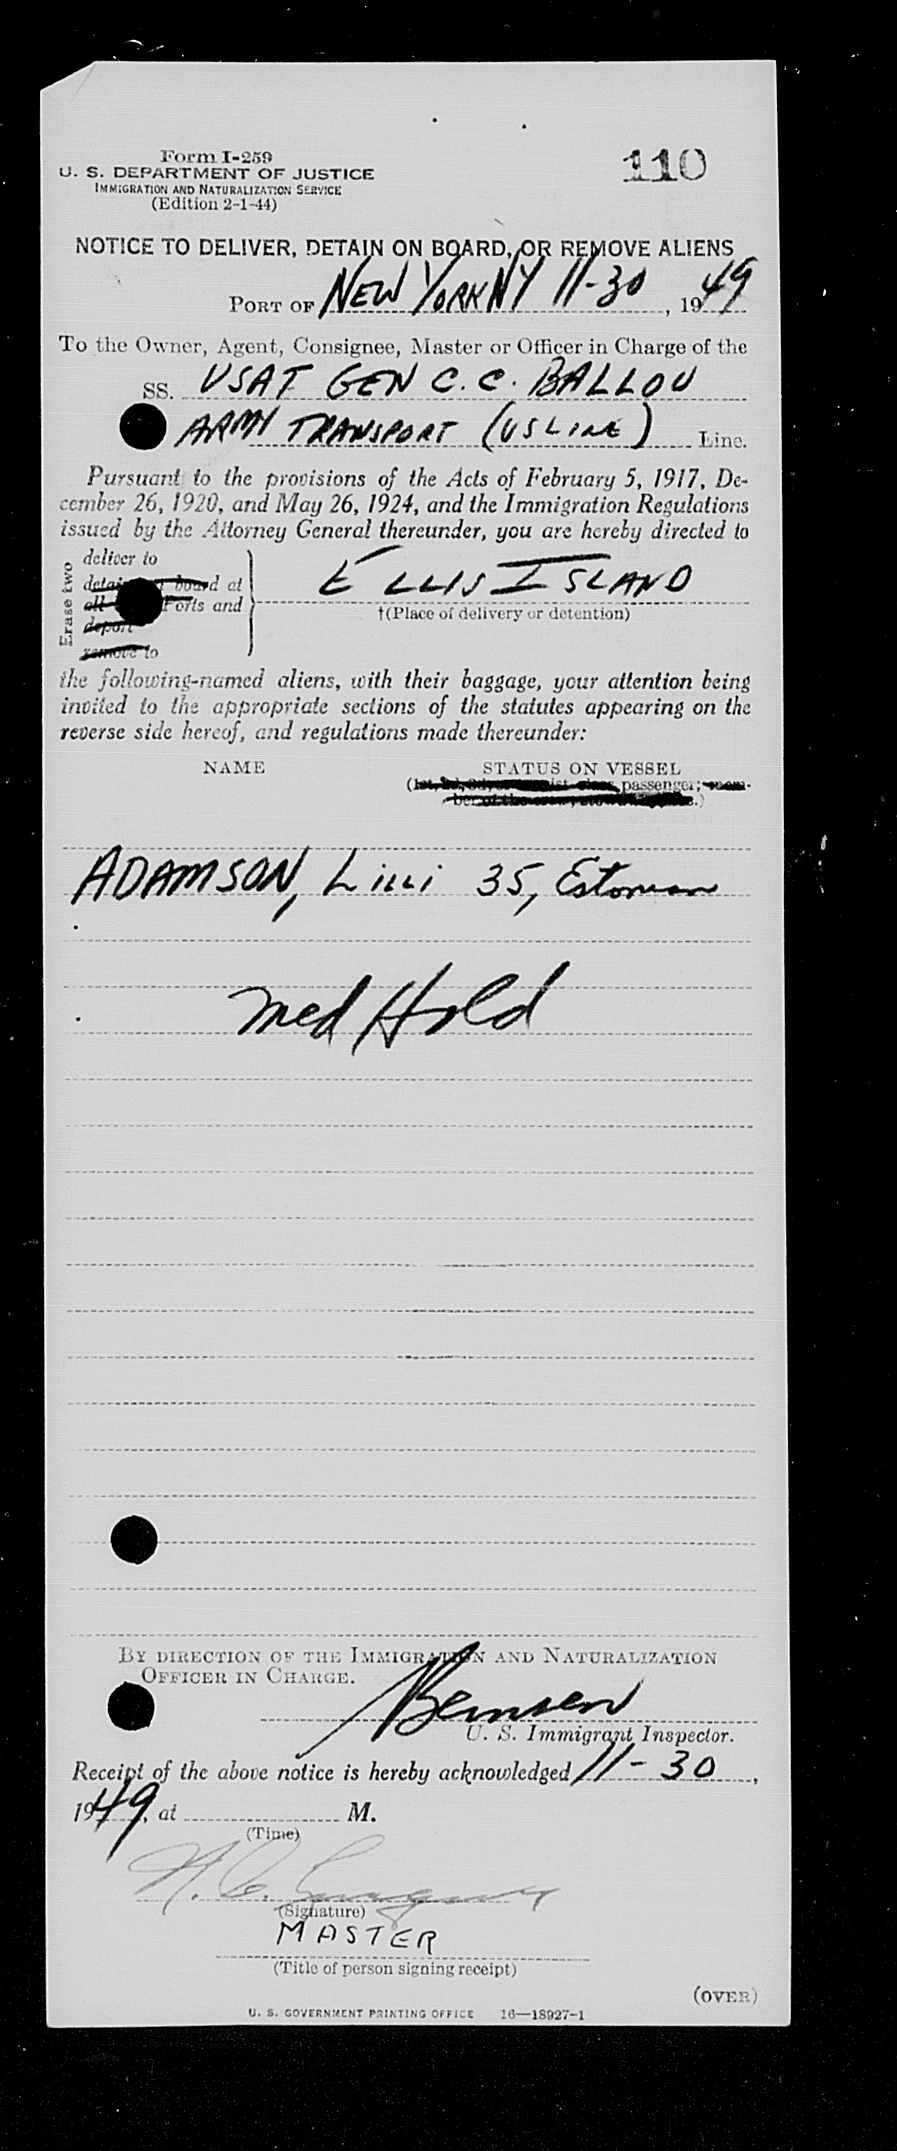 Form I-259
U. S. DEPARTMENT OF JUSTICE
IMMIGRATION AND NATURALIZATION SERVICE
(Edition 2-1-44)
110
NOTICE TO DELIVER, DETAIN ON BOARD, OR REMOVE ALIENS
PORT OF NEW YORK NY 11-30, 1949
To the Owner, Agent, Consignee, Master or Officer in Charge of the
SS. USAT GEN C. C. BALLOU
ARMY TRANSPORT (US LINE) Line.
Pursuant to the provisions of the Acts of February 5, 1917, De-
cember 26, 1920, and May 26, 1924, and the Immigration Regulations
issued by the Attorney General thereunder, you are hereby directed to
Erase two
deliver to
board at
Ports and
deport
remove to
ELLIS ISLAND
†(Place of delivery or detention)
the following-named aliens, with their baggage, your attention being
invited to the appropriate sections of the statutes appearing on the
reverse side hereof, and regulations made thereunder:
NAME STATUS ON VESSEL
passenger;
ADAMSON, Lilli 35, Estonian
Med Hold
BY DIRECTION OF THE IMMIGRATION AND NATURALIZATION
OFFICER IN CHARGE.
U. S. Immigrant Inspector.
Receipt of the above notice is hereby acknowledged 11-30,
1949, at M.
(Time)
(Signature)
MASTER
(Title of person signing receipt)
(OVER)
U. S. GOVERNMENT PRINTING OFFICE 16—18927-1